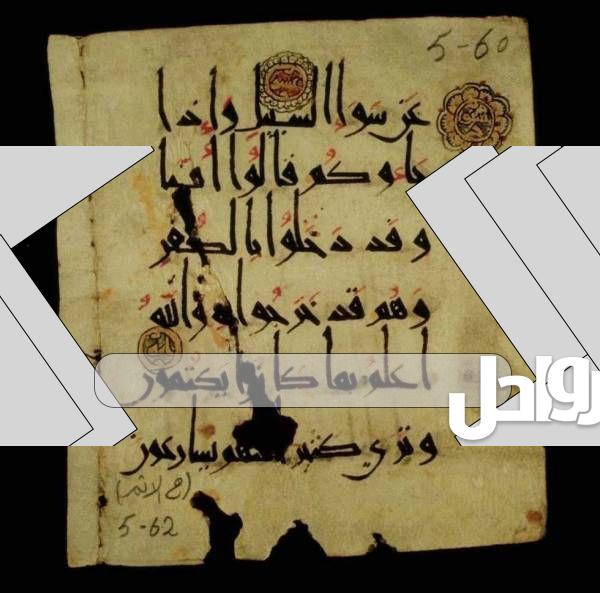 5-60
عن سوا السبيل واذا
جاوكم قالوا امنا
وقد دخلوا بالكفر
وهم قد خرجوا به والله
اعلم بما كانوا يكتمون
رواحل
وتري كثيرا منهم يسارعون
(في الاثم)
5-62